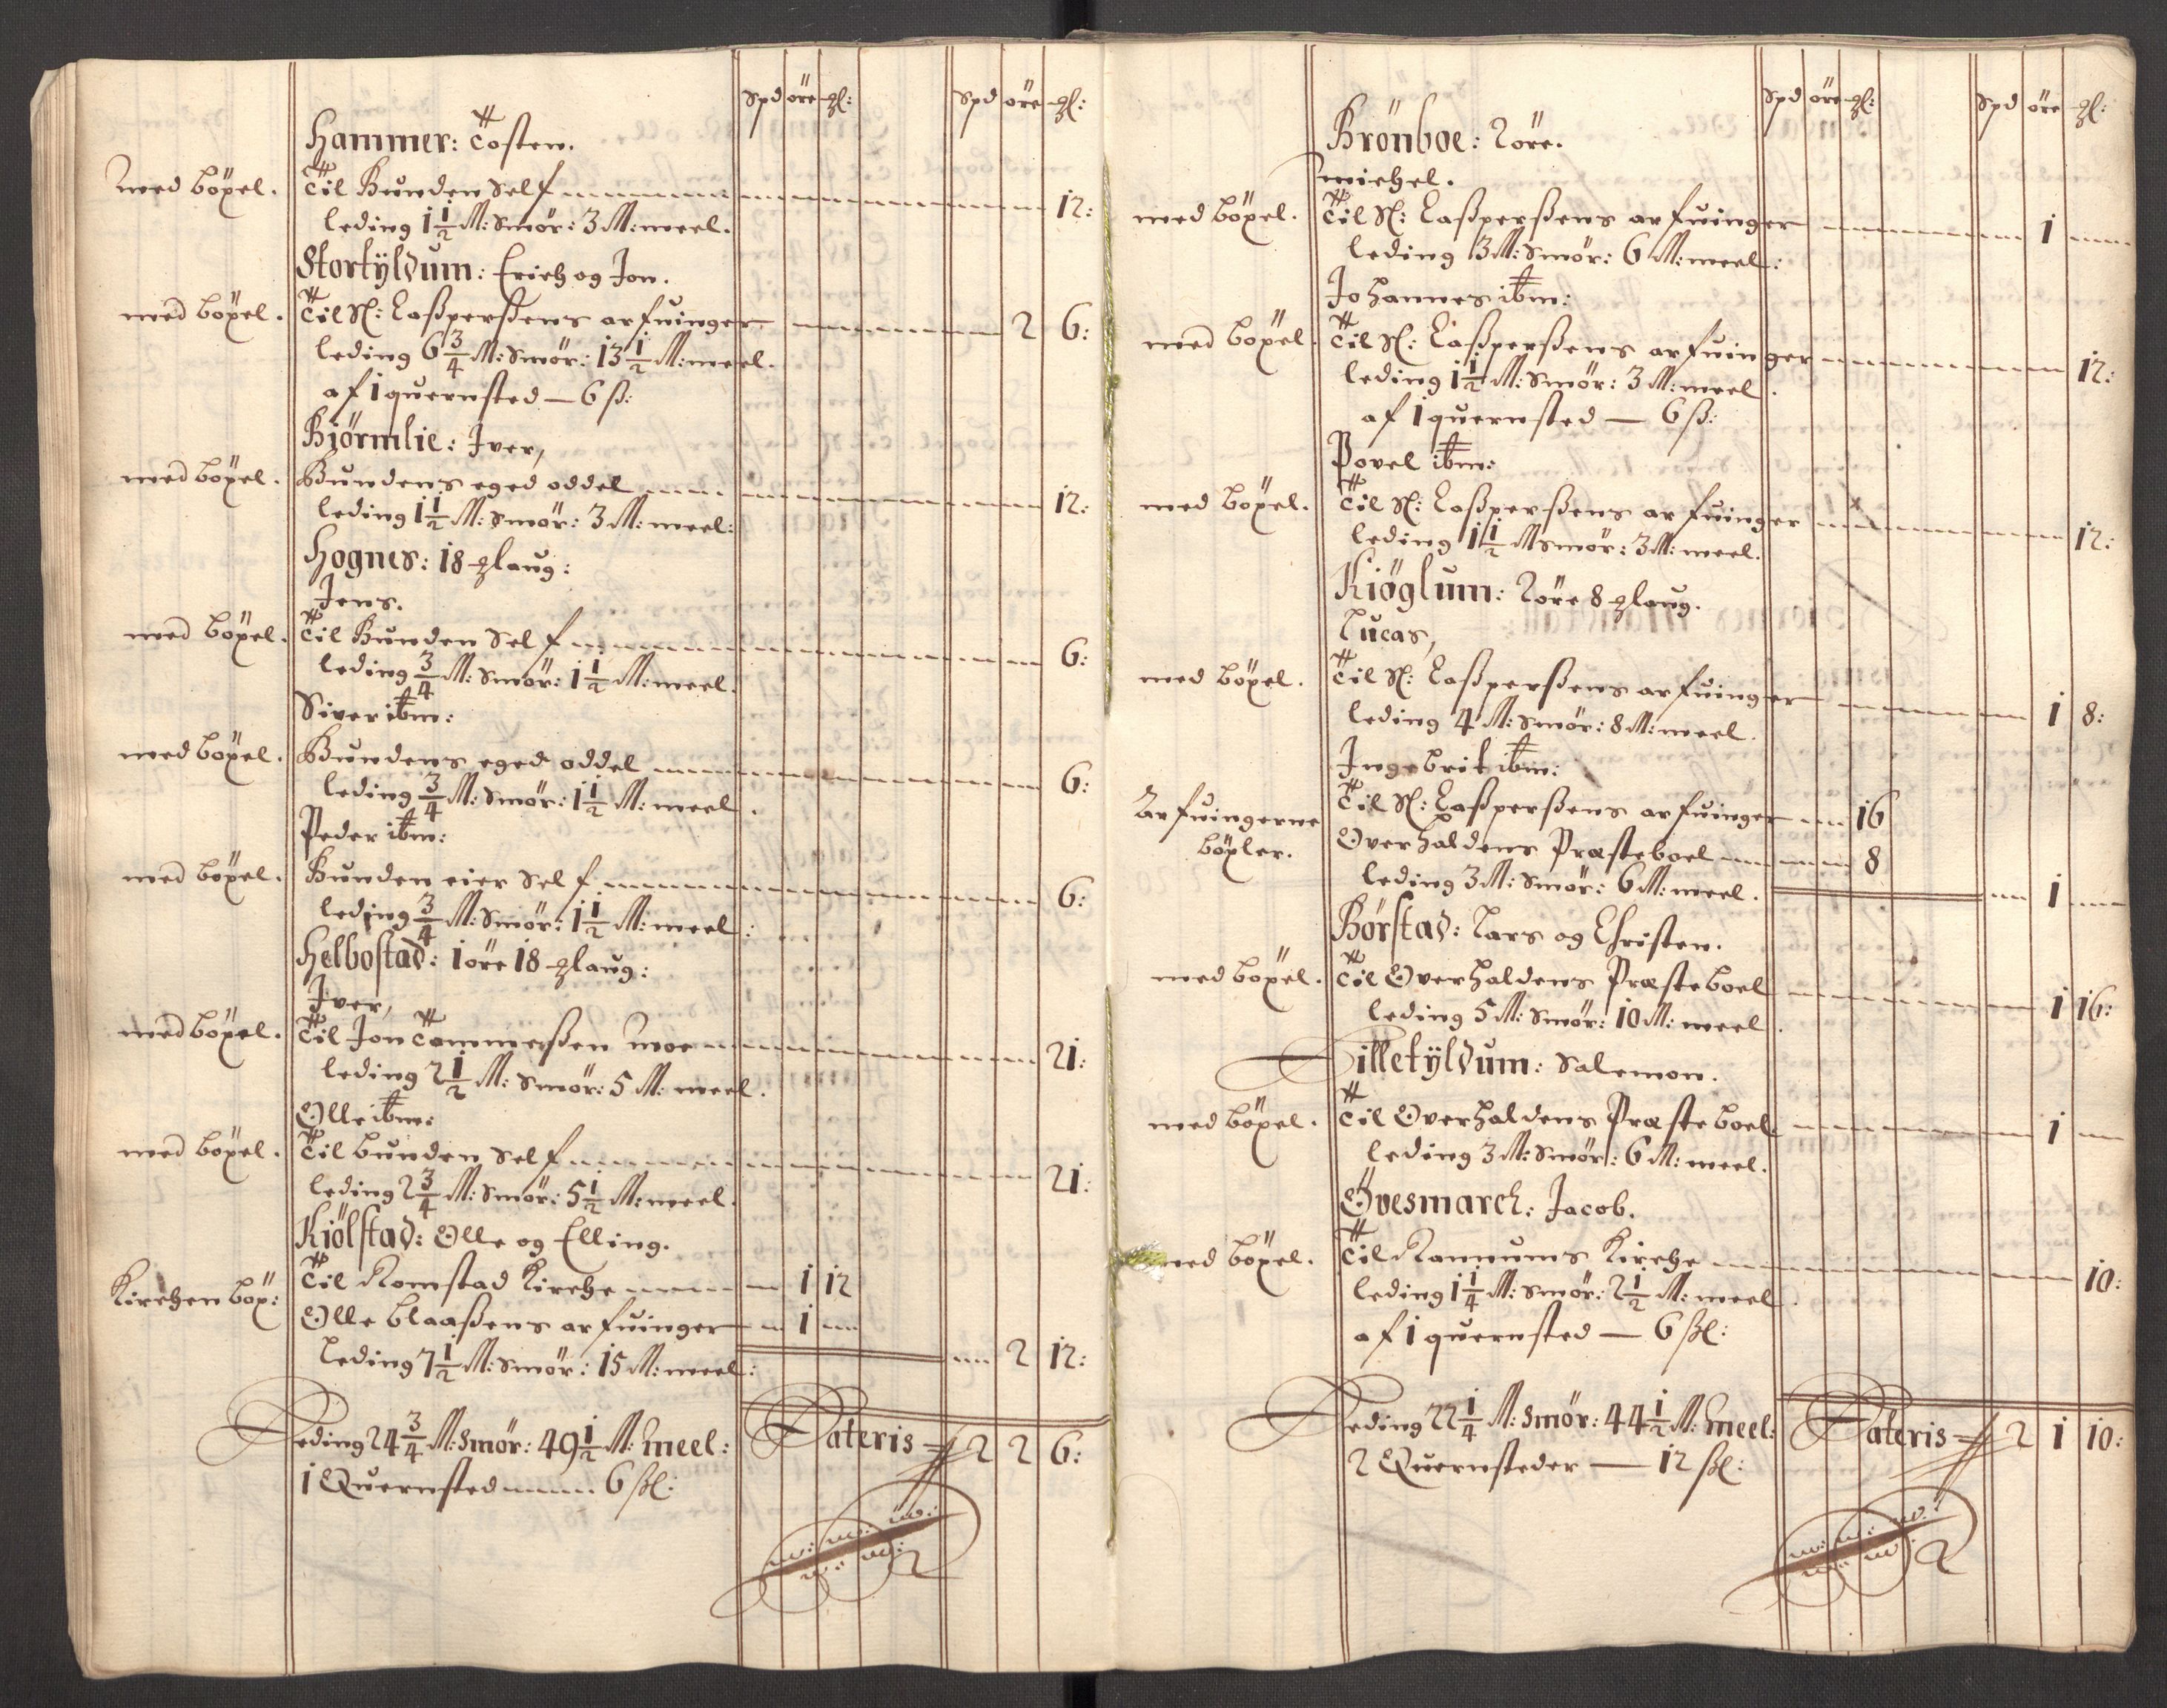 Spd öre ℳ: Spd öre ℳ:
Hammer: Tosten.
med böxel. Til Bunden Self 12:
leding 1 1/2 M: Smör: 3 M: meel.
Stortÿldum: Erich og Jon.
med böxel. Til Sl: Caßperßens arfuinger 2 6:
leding 6 3/4 M: Smör: 13 1/2 M: meel.
af 1 quernsted — 6 ß:
Biörmlie: Iver,
med böxel. Bundens eged oddel 12:
leding 1 1/2 M: Smör: 3 M: meel:
Hognes: 18 ℳlaug:
Jens.
med böxel. Til Bunden Self 6:
leding 3/4 M: Smör: 1 1/2 M: meel.
Siver ibm:
med böxel. Bundens eged oddel 6:
leding 3/4 M: Smör: 1 1/2 M: meel.
Peder ibm:
med böxel. Bunden eier Self 6:
leding 3/4 M: Smör: 1 1/2 M: meel:
Helbostad: 1 öre 18 ℳlaug:
Iver,
med böxel. Til Jon Tommeßen Moe 21:
leding 2 1/2 M: Smör: 5 M: meel.
Olle ibm:
med böxel. Til bunden Self 21:
leding 2 3/4 M: Smör: 5 1/2 M: meel.
Kiölstad: Olle og Elling.
Kirchen böx: Til Romstad Kirche 1 12
Olle Claaßens arfuinger 1
leding 7 1/2 M: Smör: 15 M: meel: 2 12:
Leding 24 3/4 M: Smör: 49 1/2 M: Meel: Lateris 2 2 6:
1 Quernsted 6 ßl:
Spd öre ℳ: Spd öre ℳ:
Brönboe: 2 öre.
Michel.
med böxel. Til Sl: Caßperßens arfuinger 1
leding 3 M: Smör: 6 M: meel:
Johannes ibm:
med böxel. Til Sl: Caßperßens arfuinger 12:
leding 1 1/2 M: Smör: 3 M: meel.
af 1 quernsted — 6 ß:
Povel ibm:
med böxel. Til Sl: Caßperßens arfuinger 12:
leding 1 1/2 M Smör: 3 M: meel.
Kiöglum: 2 öre 8 ℳlaug.
Lucas,
med böxel. Til Sl: Caßperßens arfuinger 1 8:
leding 4 M: Smör: 8 M: meel.
Ingebrit ibm:
Arfuingerne Til Sl: Caßperßens arfuinger 16
böxler. Overhaldens Præsteboel 8
leding 3 M: Smör: 6 M: meel. 1
Börstad: Lars og Christen.
med böxel. Til Overhaldens Præsteboel 1 16:
leding 5 M: Smör: 10 M: meel.
Lilletÿldum: Salemon.
med böxel. Til Overhaldens Præsteboel 1
leding 3 M: Smör: 6 M: meel.
Övesmarch: Jacob.
med böxel. Til Rannums Kirche 10:
leding 1 1/4 M: Smör: 2 1/2 M: meel.
af 1 quernsted — 6 ßl:
Leding 22 1/4 M: Smör: 44 1/2 M: Meel: Lateris 2 1 10:
2 Quernsteder — 12 ßl: